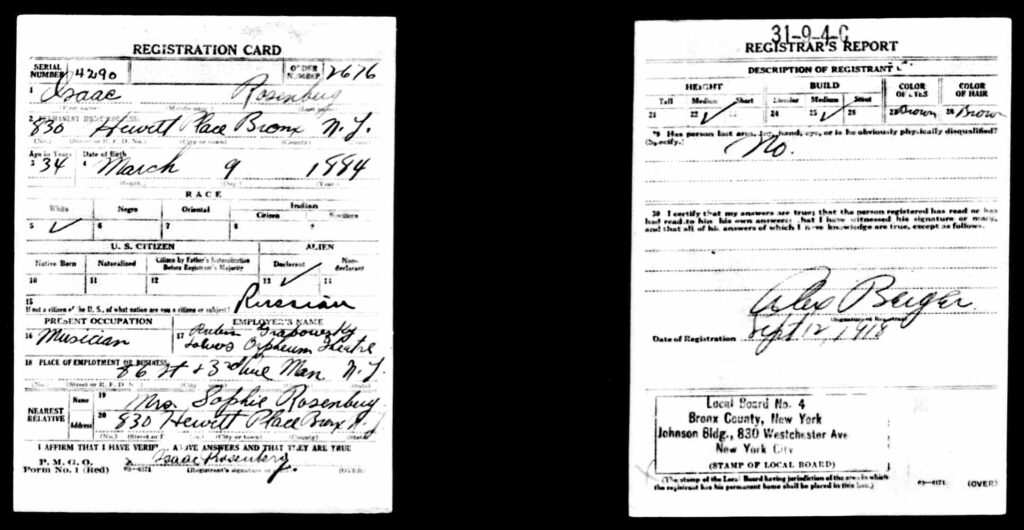 REGISTRATION CARD
SERIAL NUMBER 4290 ORDER NUMBER 2676
1 Isaac Rosenberg
2 PERMANENT HOME ADDRESS:
830 Hewitt Place Bronx N.Y.
(No.) (Street or R. F. D. No.) (City or town) (County) (State)
Age in Years Date of Birth
3 34 4 March 9 1884
(Month) (Day) (Year)
RACE
White Negro Oriental Indian
Citizen
5 ✓ 6 7 8 9
U. S. CITIZEN ALIEN
Native Born Naturalized Citizen by Father's Naturalization Before Registrant's Majority Declarant Non-declarant
10 11 12 13 ✓ 14
15 If not a citizen of the U. S., of what nation are you a citizen or subject? Russian
PRESENT OCCUPATION EMPLOYER'S NAME
16 Musician 17 Rubin
Orpheum Theatre
18 PLACE OF EMPLOYMENT OR BUSINESS:
86 St & 3rd Ave Man N.Y.
(No.) (Street or R. F. D. No.) (City or town) (State)
NEAREST RELATIVE Name 19 Mrs. Sophie Rosenberg
Address 20 830 Hewitt Place Bronx N.Y.
(No.) (Street or (City or town) (County) (State)
I AFFIRM THAT I HAVE VERIFIED ABOVE ANSWERS AND THAT THEY ARE TRUE
P. M. G. O.
Form No. 1 (Red) 03-6171 Isaac Rosenberg
(Registrant's signature or (OVER)
31-9-4-C
REGISTRAR'S REPORT
DESCRIPTION OF REGISTRANT
HEIGHT BUILD COLOR OF EYES COLOR OF HAIR
Tall Medium Short Slender Medium Stout
21 22 ✓ 23 24 25 ✓ 26 27 Brown 28 Brown
29 Has person lost arm, leg, hand, eye, or is he obviously physically disqualified?
(Specify.) No.
30 I certify that my answers are true; that the person registered has read or has
had read to him his own answers; that I have witnessed his signature or mark,
and that all of his answers of which I have knowledge are true, except as follows:
Alex Berger
(Signature of Registrar)
Date of Registration Sept 12, 1918
Local Board No. 4
Bronx County, New York
Johnson Bldg., 830 Westchester Ave
New York City
(STAMP OF LOCAL BOARD)
(The stamp of the Local Board having jurisdiction of the area in which
the registrant has his permanent home shall be placed in this box.) 03-6171 (OVER)